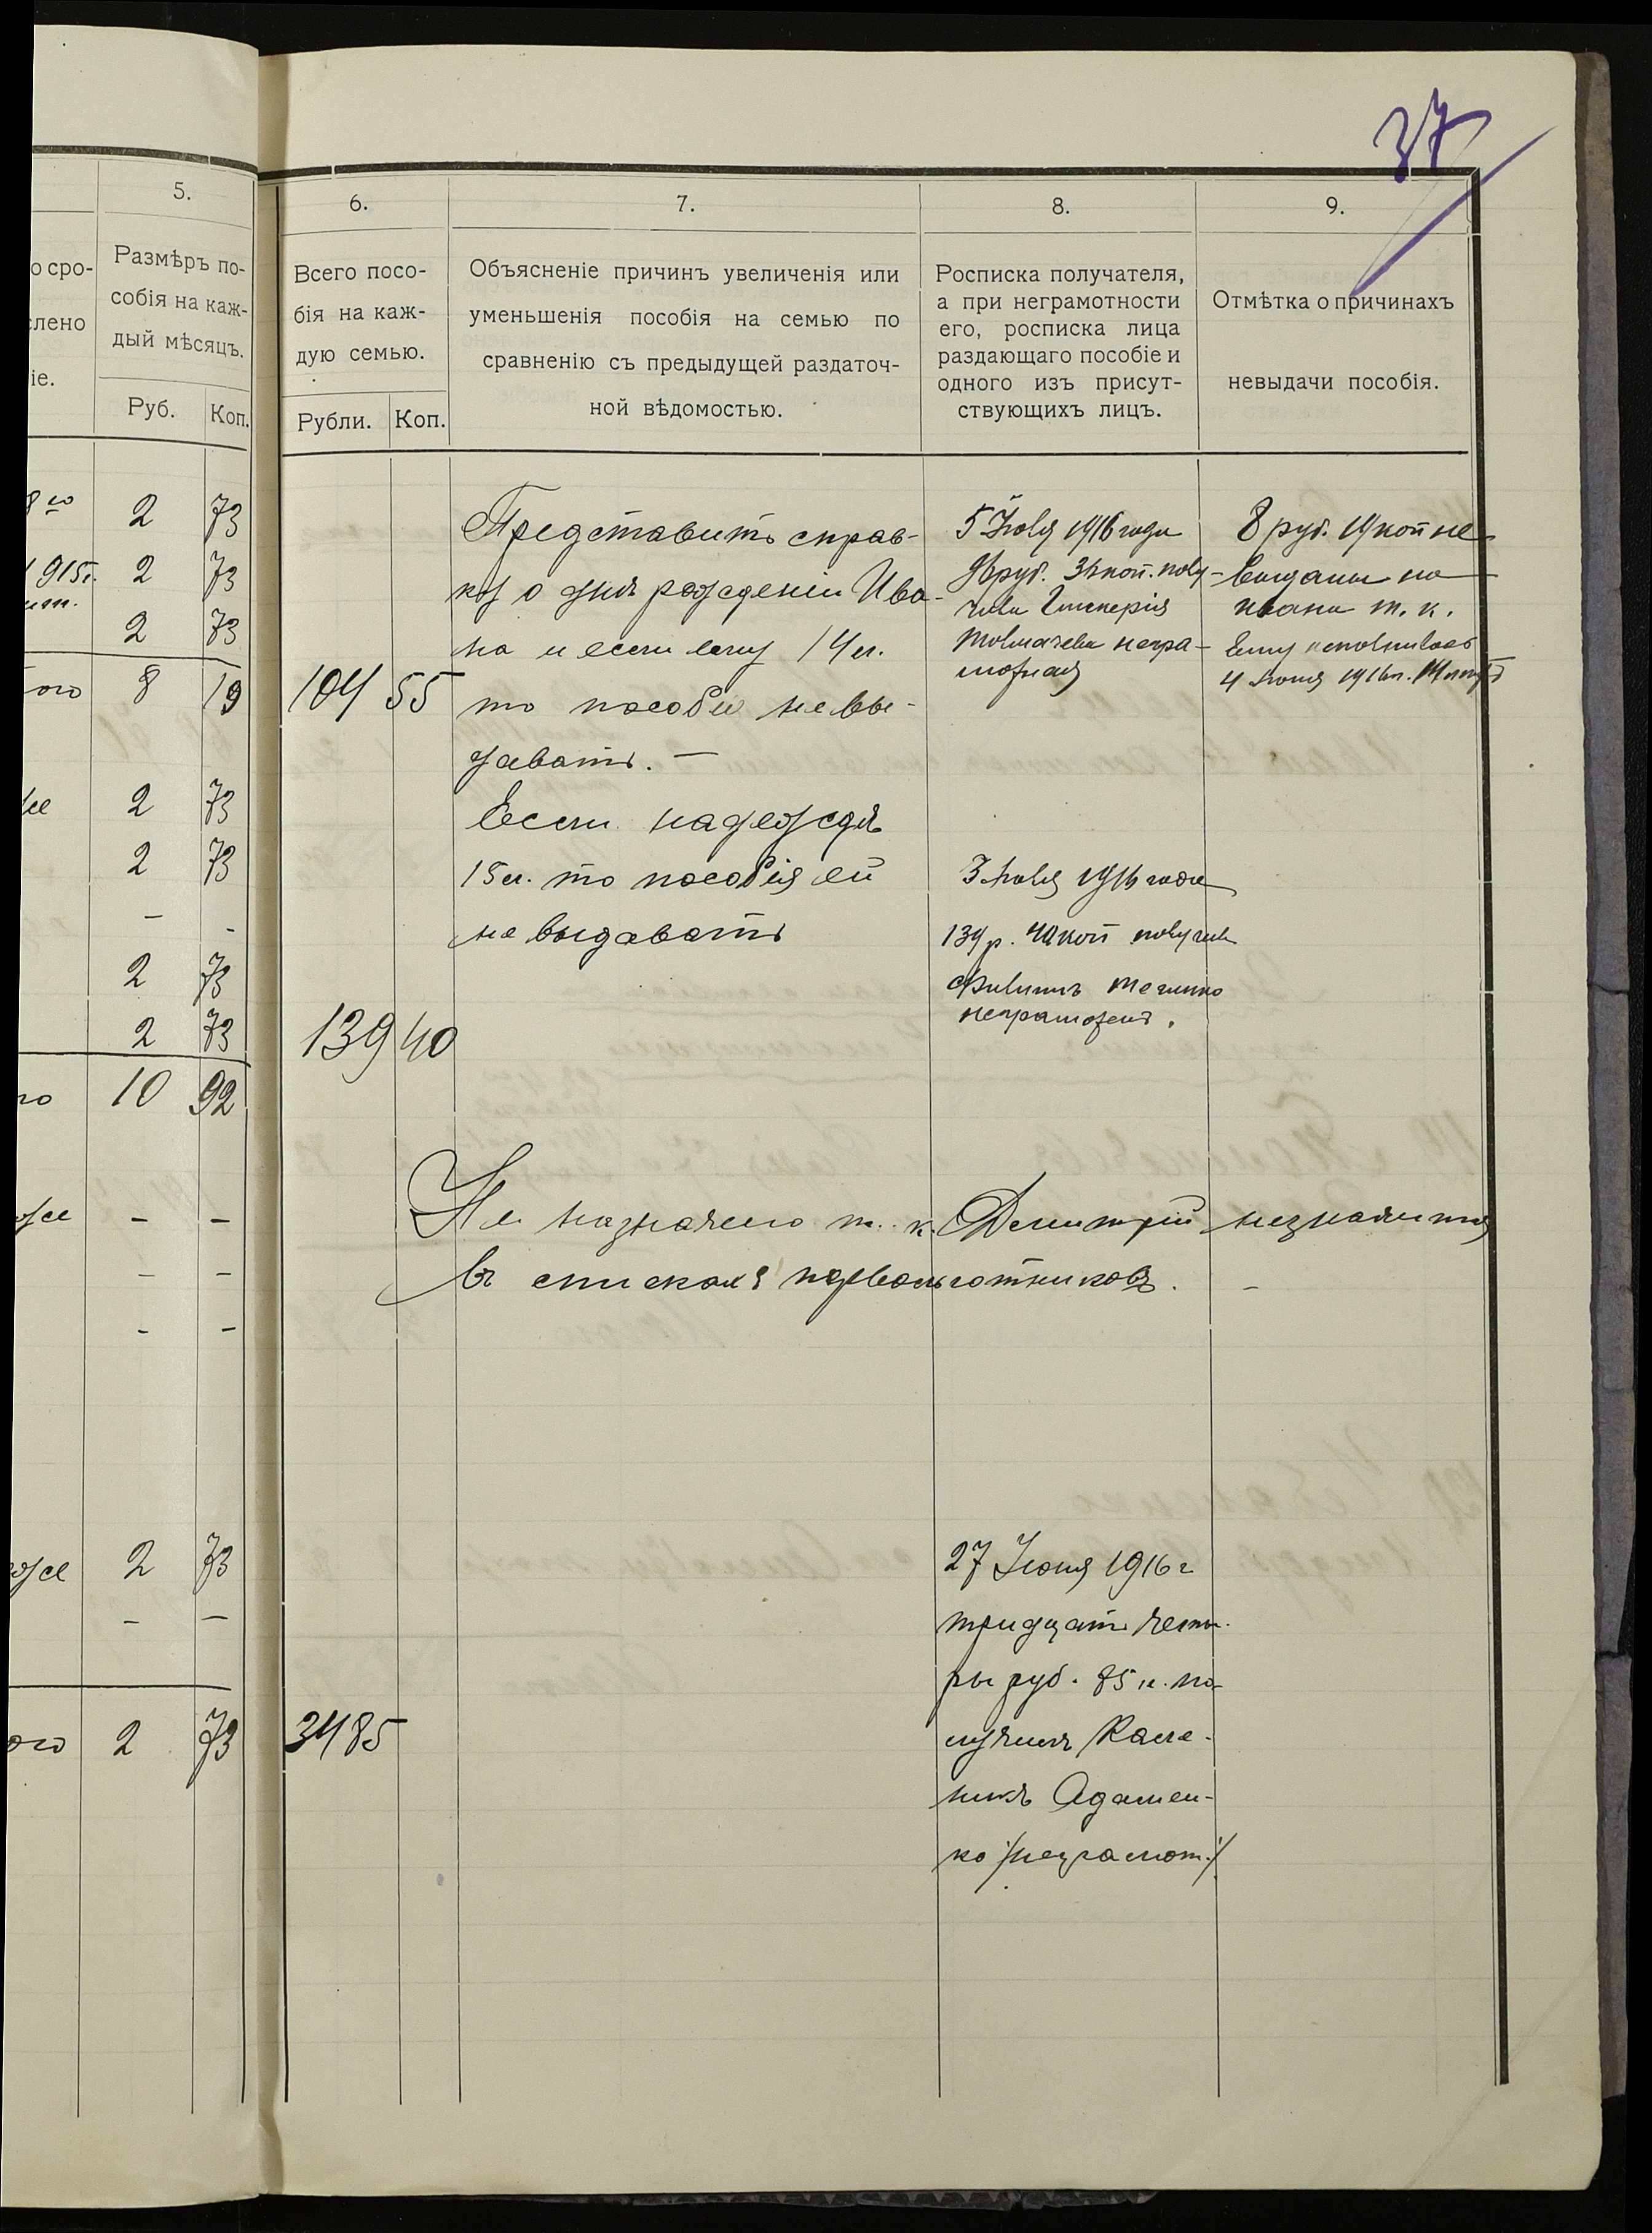 37
5.
о сро-
Размѣръ по-
собія на каж-
слено
дый мѣсяцъ.
іе.
Руб. Коп.
6.
Всего посо-
бія на каж-
дую семью.
Рубли. Коп.
7.
Объясненіе причинъ увеличенія или
уменьшенія пособія на семью по
сравненію съ предыдущей раздаточ-
ной вѣдомостью.
8.
Росписка получателя,
а при неграмотности
его, росписка лица
раздающаго пособіе и
одного изъ присут-
ствующихъ лицъ.
9.
Отмѣтка о причинахъ
невыдачи пособія.
2 73
1915г. 2 73
2 73
ого 8 19
104 55
Представить справ-
ку о дня рожденіи Ива-
на и если ему 14 л.
то пособія не вы-
давать. —
5 Іюля 1916 года
96 руб. 36 коп. полу-
чила
Толмачева негра-
мотная
8 руб. 19 коп не
выданы на
Ивана т. к.
ему исполнилось
4 Іюня 1916 г. 14 лѣтъ
же 2 73
2 73
— -
2 73
2 73
го 10 92
139 40
Если надежда
15 л. то пособія ей
не выдавать
3 Іюля 1916 года
139 р. 40 коп получил
Филиппъ
неграмотенъ.
оже - -
— —
- —
Не назначено т. к. Дмитрій незначится
въ спискахъ перволготниковъ. -
оже 2 73
— —
ого 2 73
34 85
27 Іюня 1916 г
тридцать четы-
ры руб. 85 к. по-
лучилъ Кале-
никъ Адамен-
ко /неграмот./